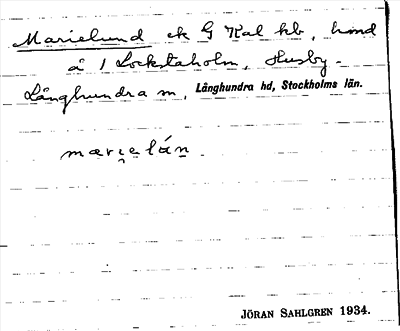 Marielund ek G Kal kb, hmd
å 1 Lockstaholm, Husby-
Långhundra sn, Långhundra hd, Stockholms län.
mærɩ̯elán
JÖRAN SAHLGREN 1934.